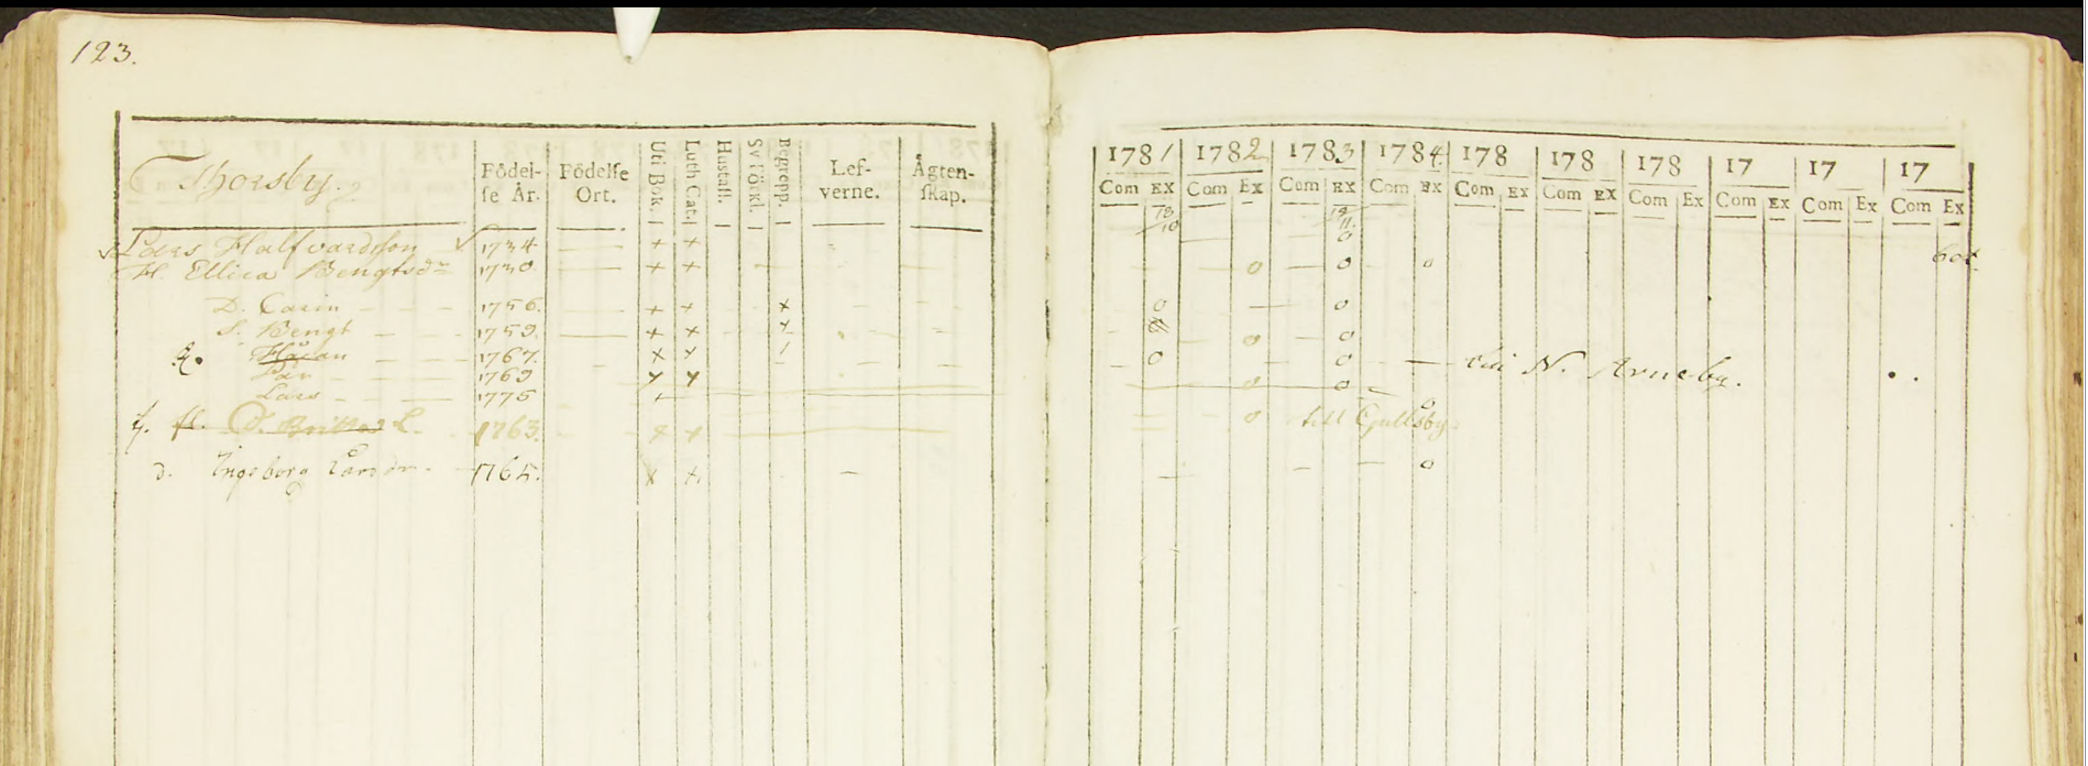 123.
Thorsby.
Födel-
se År.
Födelse
Ort.
Uti Bok.
Luth Cat.
Hustafl.
Sv
Begrepp.
Lef-
verne.
Ägten-
skap.
1781 1782 1783 1784 178 178 178 17 17 17
Com Ex Com Ex Com Ex Com Ex Com Ex Com Ex Com Ex Com Ex Com Ex Com Ex
Lars Halfvardsson 1734
H. Ellica Bengtsdr 1730
D. Carin 1756.
S. Bengt 1759.
Håkan 1767.
Pär 1769
Lars 1775
D. L. 1763. till Gullsby
d. Ingeborg Larsdr. 1765.
N. Arneby.